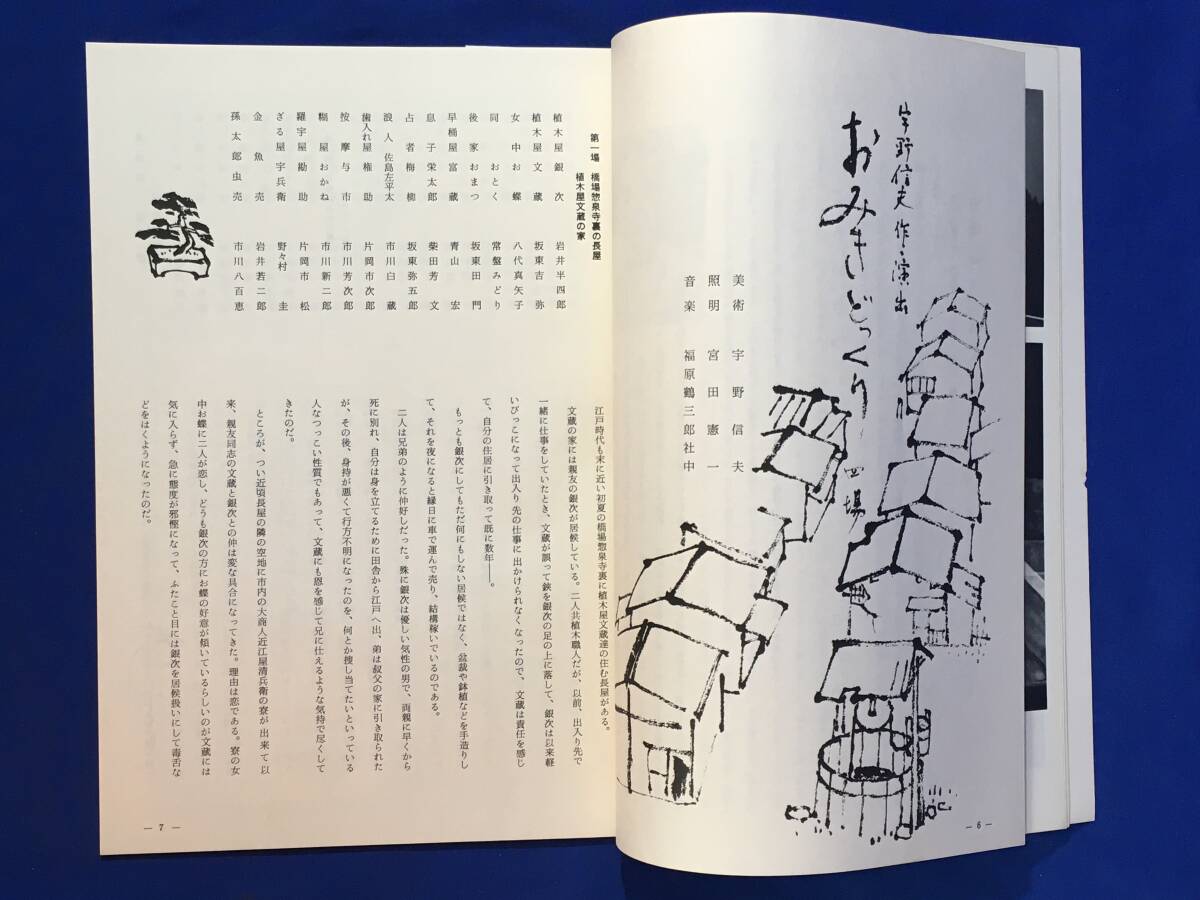 宇野信夫 作・演出
おみきどっくり
四場
美術 宇野信夫
照明 宮田憲一
音楽 福原鶴三郎社中
― 6 ―
第一場 橋場惣泉寺裏の長屋
植木屋文蔵の家
植木屋銀次 岩井半四郎
植木屋文蔵 坂東吉弥
女中お蝶 八代真矢子
同おとく 常盤みどり
後家おまつ 坂東田門
早桶屋富蔵 青山宏
息子栄太郎 柴田芳文
占者梅柳 坂東弥五郎
浪人佐島左平太 市川白蔵
歯入れ屋権助 片岡市次郎
按摩与市 市川芳次郎
糊屋おかね 市川新二郎
羅宇屋勘助 片岡市松
ざる屋宇兵衛 野々村圭
金魚売 岩井若二郎
孫太郎虫売 市川八百恵
江戸時代も末に近い初夏の橋場惣泉寺裏に植木屋文蔵達の住む長屋がある。
文蔵の家には親友の銀次が居候している。二人共植木職人だが、以前、出入り先で
一緒に仕事をしていたとき、文蔵が誤って鋏を銀次の足の上に落して、銀次は以来軽
いびっこになって出入り先の仕事に出かけられなくなったので、文蔵は責任を感じ
て、自分の住居に引き取って既に数年――。
もっとも銀次にしてもただ何にもしない居候ではなく、盆栽や鉢植などを手造りし
て、それを夜になると縁日に車で運んで売り、結構稼いでいるのである。
二人は兄弟のように仲好しだった。殊に銀次は優しい気性の男で、両親に早くから
死に別れ、自分は身を立てるために田舎から江戸へ出、弟は叔父の家に引き取られた
が、その後、身持が悪くて行方不明になったのを、何とか捜し当てたいといっている
人なつっこい性質でもあって、文蔵にも恩を感じて兄に仕えるような気持で尽くして
きたのだ。
ところが、つい近頃長屋の隣の空地に市内の大商人近江屋清兵衛の寮が出来て以
来、親友同志の文蔵と銀次との仲は変な具合になってきた。理由は恋である。寮の女
中お蝶に二人が恋し、どうも銀次の方にお蝶の好意が傾いているらしいのが文蔵には
気に入らず、急に態度が邪慳になって、ふたこと目には銀次を居候扱いにして毒舌な
どをはくようになったのだ。
― 7 ―